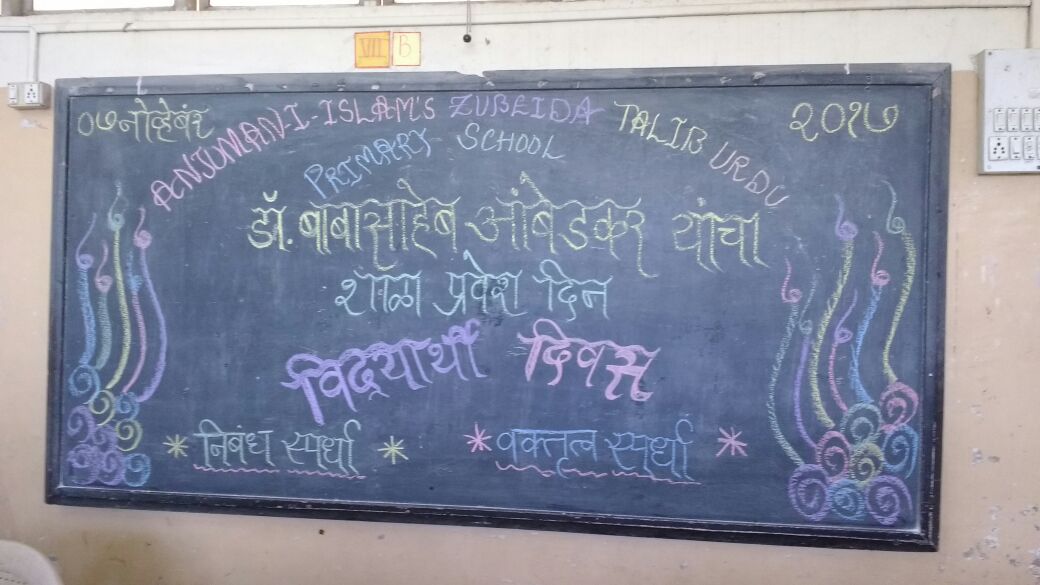 VII B
०७ नोव्हेंबर २०१७
ANJUMAN-I-ISLAM'S ZUBEIDA TALIB URDU
PRIMARY SCHOOL
डॉ. बाबासाहेब आंबेडकर यांचा
शाळा प्रवेश दिन
विद्यार्थी दिवस
निबंध स्पर्धा वक्तृत्व स्पर्धा